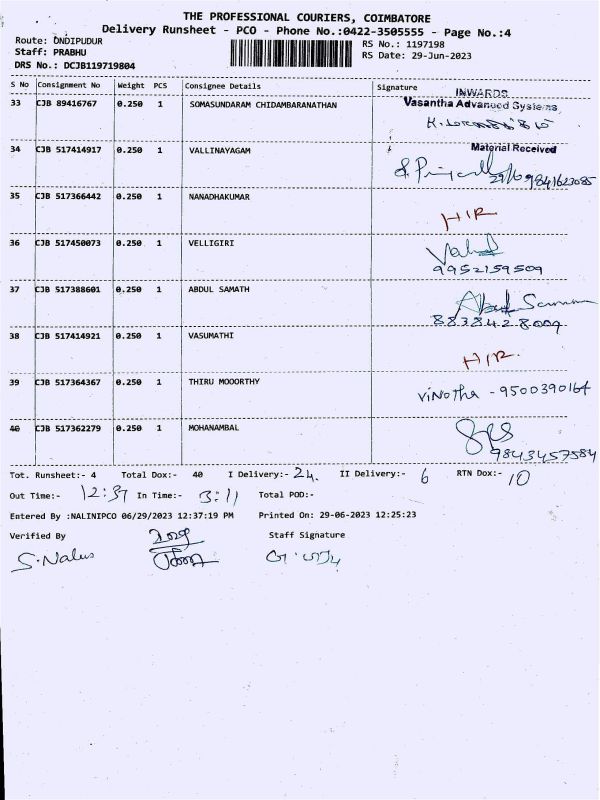 THE PROFESSIONAL COURIERS, COIMBATORE
Delivery Runsheet - PCO - Phone No.:0422-3505555 - Page No.:4
Route: ONDIPUDUR RS No.: 1197198
Staff: PRABHU RS Date: 29-Jun-2023
DRS No.: DCJB119719804
S No Consignment No Weight PCS Consignee Details Signature
INWARDS
33 CJB 89416767 0.250 1 SOMASUNDARAM CHIDAMBARANATHAN Vasantha Advanced Systems
34 CJB 517414917 0.250 1 VALLINAYAGAM Material Received
29/6 9841623085
35 CJB 517366442 0.250 1 NANADHAKUMAR
HIR
36 CJB 517450073 0.250 1 VELLIGIRI
9952159509
37 CJB 517388601 0.250 1 ABDUL SAMATH
8838428009
38 CJB 517414921 0.250 1 VASUMATHI
HIR.
39 CJB 517364367 0.250 1 THIRU MOOORTHY
ViNotha - 9500390164
40 CJB 517362279 0.250 1 MOHANAMBAL
9843457584
Tot. Runsheet:- 4 Total Dox:- 40 I Delivery:- 24. II Delivery:- 6 RTN Dox:- 10
Out Time:- 12:37 In Time:- 3:11 Total POD:-
Entered By :NALINIPCO 06/29/2023 12:37:19 PM Printed On: 29-06-2023 12:25:23
Verified By Staff Signature